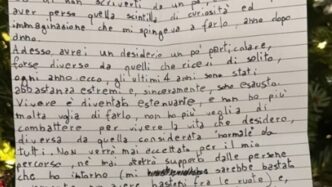 di non scriverti da un po',
aver perso quella scintilla di curiosità ed
immaginazione che mi spingeva a farlo anno dopo
anno.
Adesso avrei un desiderio un po' particolare,
forse diverso da quelli che ricevi di solito,
ogni anno ecco, gli ultimi 4 anni sono stati
abbastanza estremi e, sinceramente, sono esausta.
Vivere è diventato estenuante, e non ho più
molta voglia di farlo, non ho più voglia di
combattere per vivere la vita che desidero,
diversa da quella considerata "normale" da
tutti. Non verrò mai accettata per il mio
percorso, né mai avrei supporto dalle persone
che ho intorno (mi sarebbe bastato
bastoni fra le ruote) e,